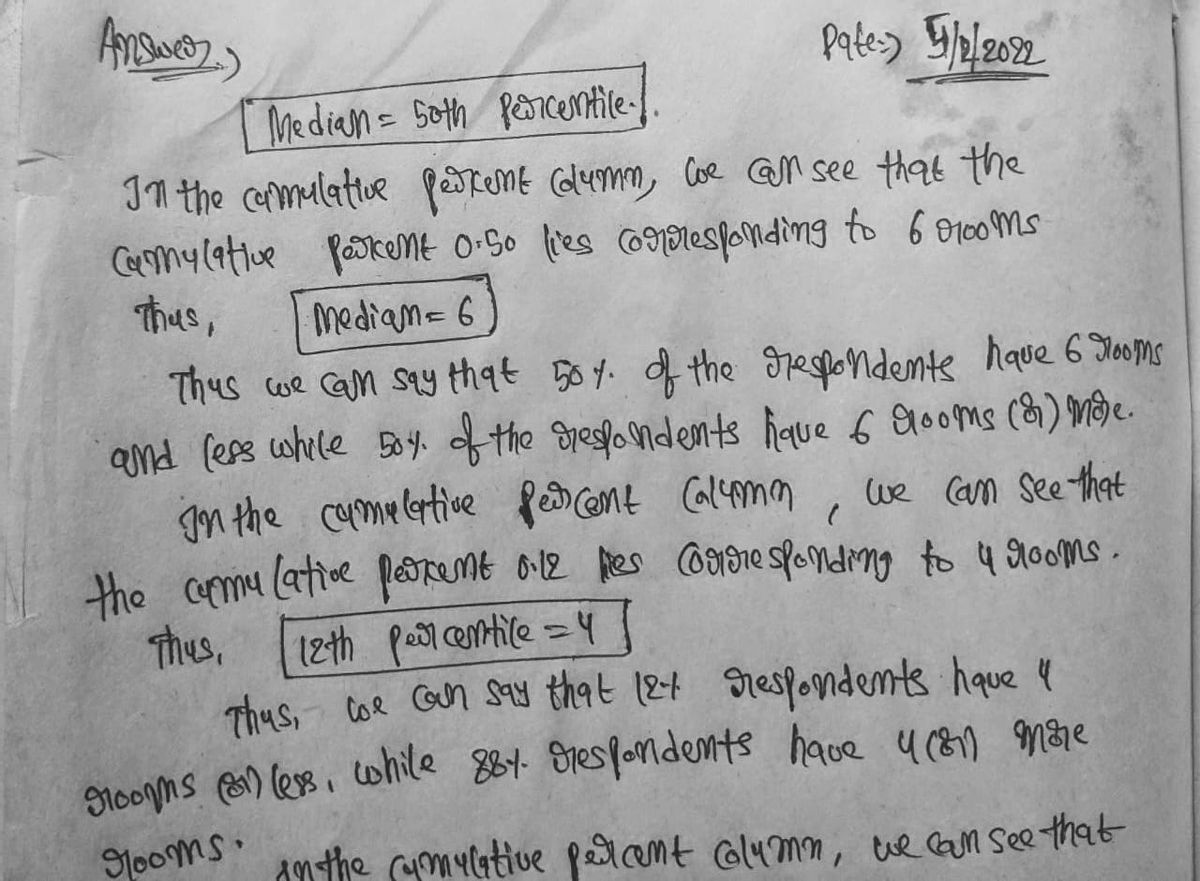 Answer:)
Date:) 5/2/2022
Median = 50th Percentile.
In the cumulative percent column, we can see that the
cumulative percent 0.50 lies corresponding to 6 rooms
Thus, Median = 6
Thus we can say that 50%. of the respondents have 6 rooms
and less while 50%. of the respondents have 6 rooms (or) more.
In the cumulative percent column, we can see that
the cumulative percent 0.12 lies corresponding to 4 rooms.
Thus, 12th percentile = 4
Thus, we can say that 12% respondents have 4
rooms (or) less, while 88%. respondents have 4 (or) more
rooms.
In the cumulative percent column, we can see that